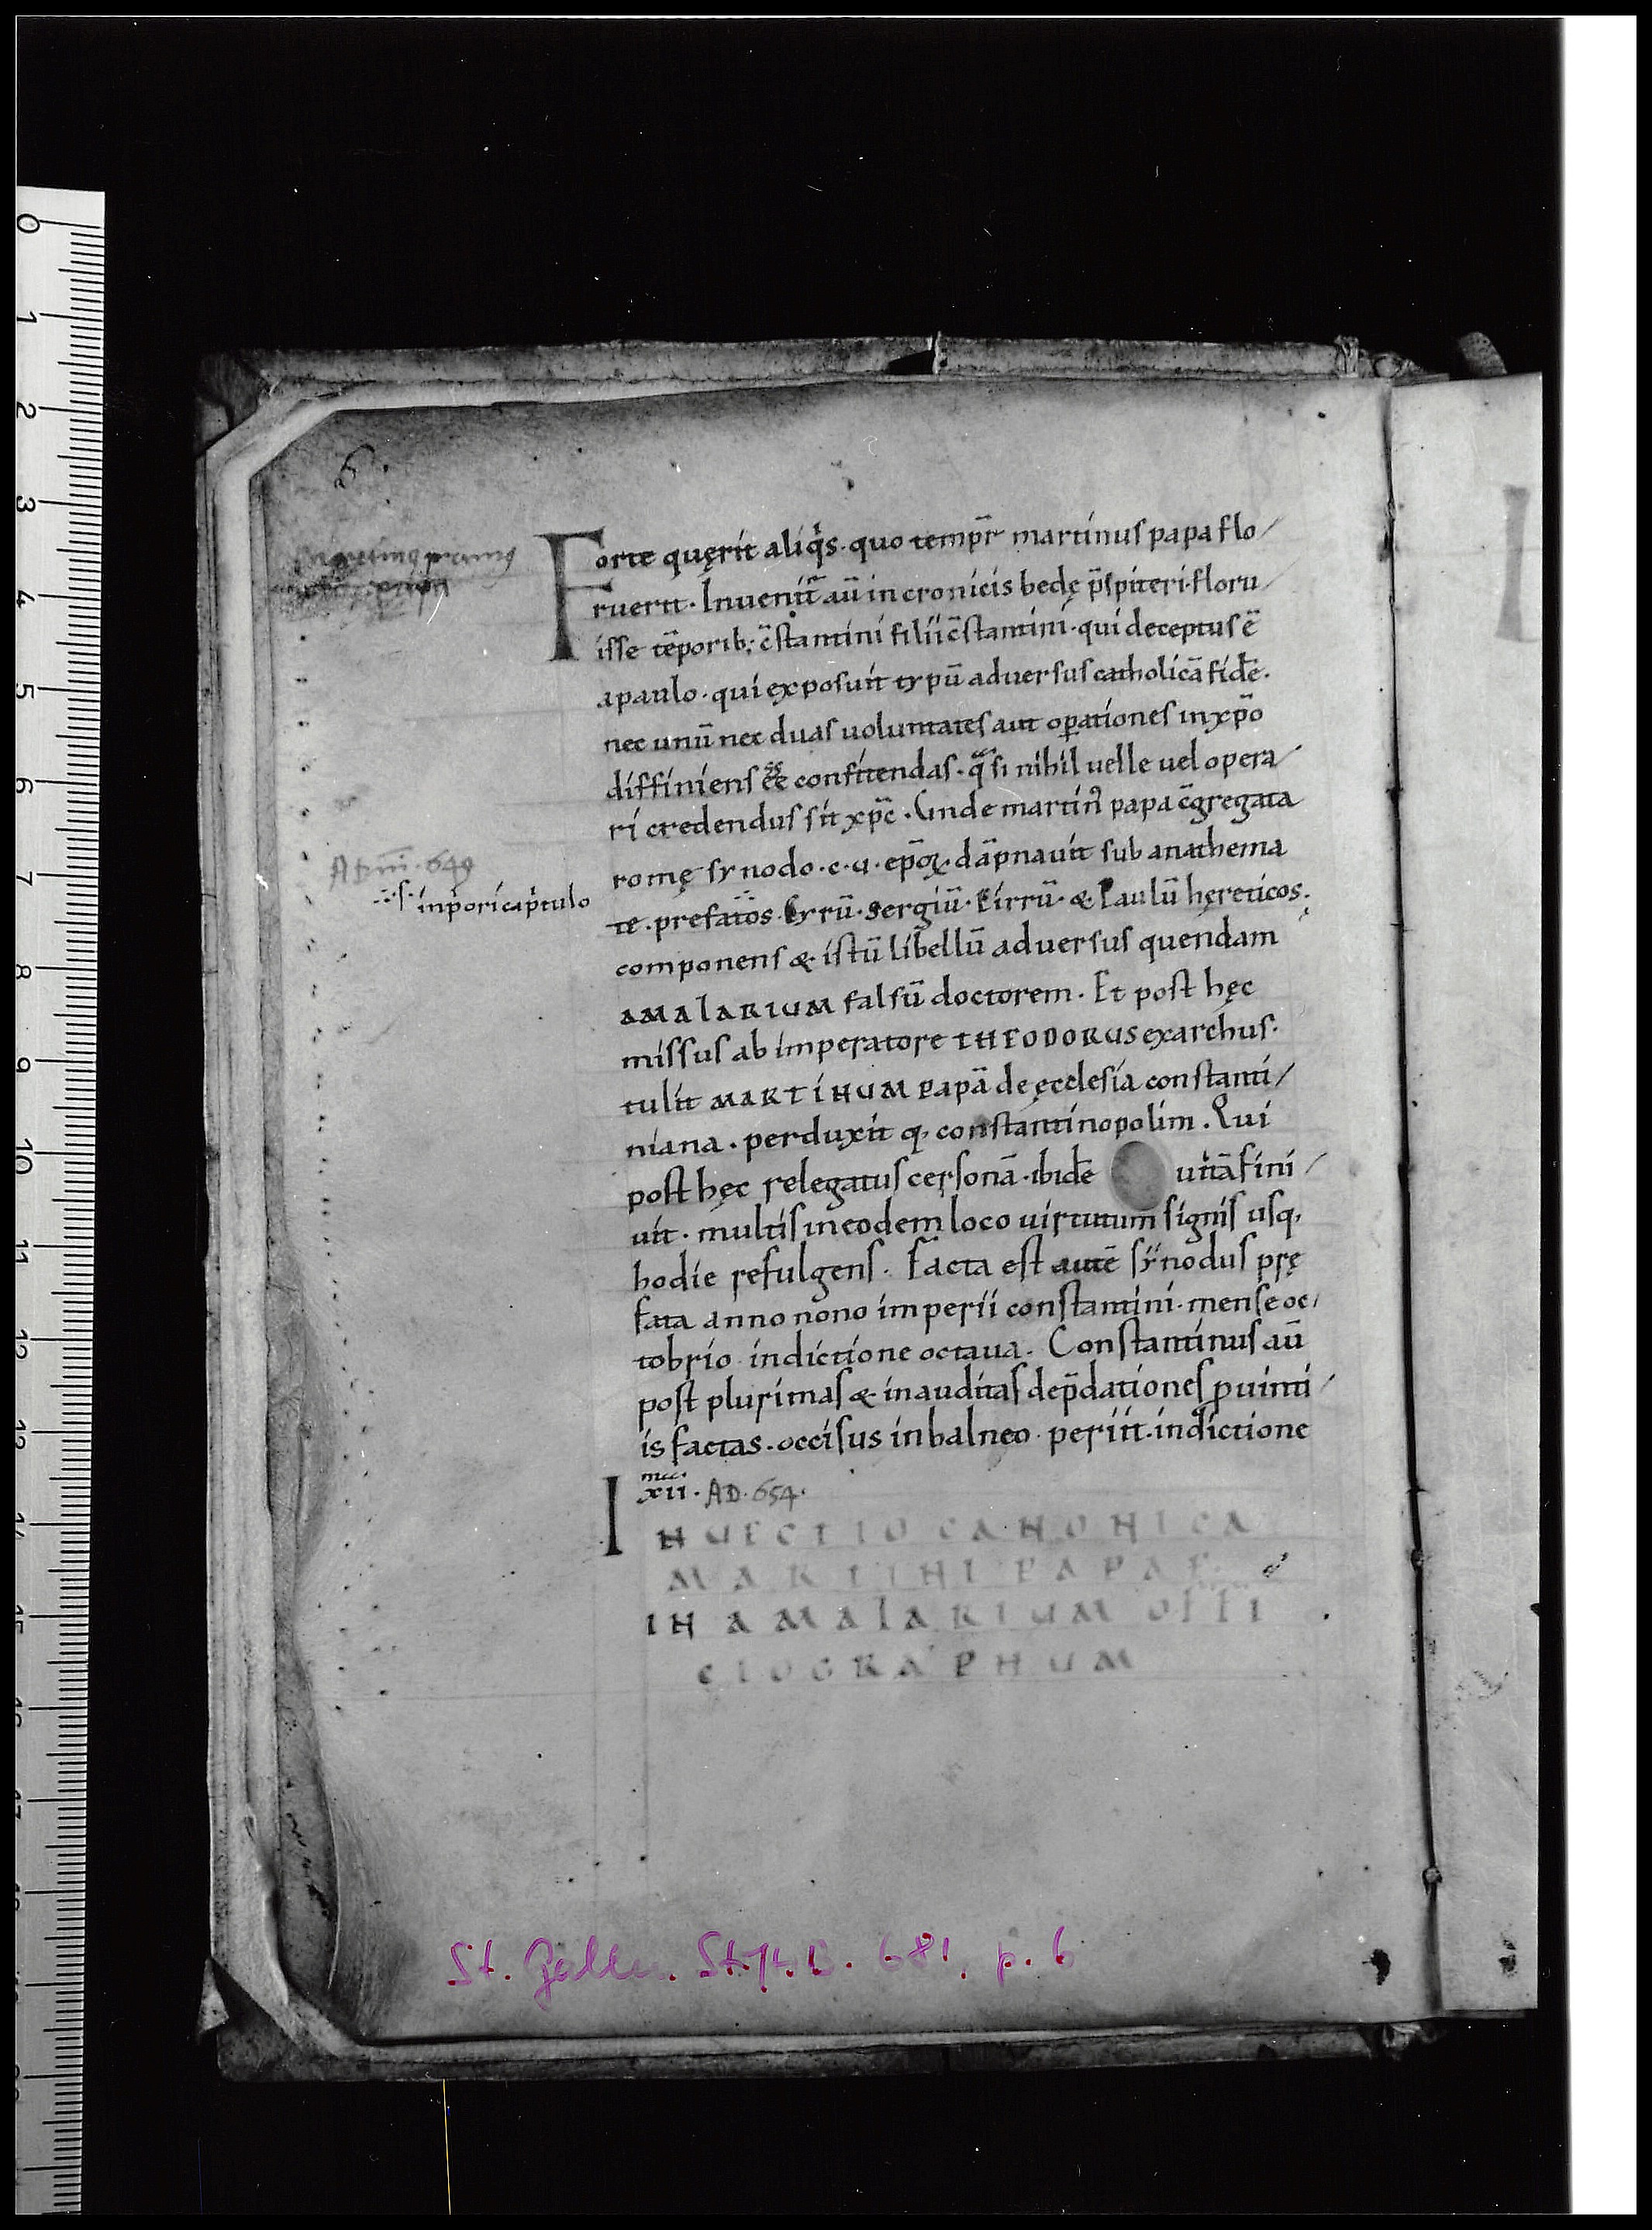 6.
Forte quęrit aliqͥs. quo temp̄r martinus papa flo/
ruerit. Inuenit᷑ aū in cronicis bedę p̄spiteri. floru/
isse tēporib; c̄stantini filii c̄stantini. qui deceptus ē
apaulo. qui exposuit typū aduersus catholicā fidē.
nec unū nec duas uoluntates aut oꝑationes in xp̄o
diffiniens eē confitendas. qͣsi nihil uelle uel opera/
ri credendus sit xp̄c. Unde martin᷒ papa c̄gregata
romę synodo. c. u. ep̄oꝝ. dāpnauit sub anathema
ADni. 649
s inpori cap̄tulo
te. prefatos. Cyrū. Sergiū. Pirrū. & Paulū hęreticos.
componens & istū libellū aduersus quendam
AMALARIUM falsū doctorem. Et post hęc
missus ab imperatore THEODORUS exarchus.
tulit MARTINUM papā de ęcclesia constanti/
niana. perduxit q; constantinopolim. Qui
post hęc relegatus cersonā. ibidē uitā fini/
uit. multis in eodem loco uirtutum signis usq;
hodie refulgens. Facta est autē synodus prę
fata anno nono imperii constantini. mense oc/
tobrio indictione octaua. Constantinus aū
post plurimas & inauditas dep̄dationes ꝓuinti/
is factas. occisus in balneo. periit. indictione
xii. AD. 654.
INUECTIO CANONICA
MARTINI PAPAE
IN AMALARIUM OFFI
CIOGRAPHUM
St. Gallen. Stftsb. 681, p. 6
0
1
2
3
4
5
6
7
8
9
10
11
12
13
14
15
16
17